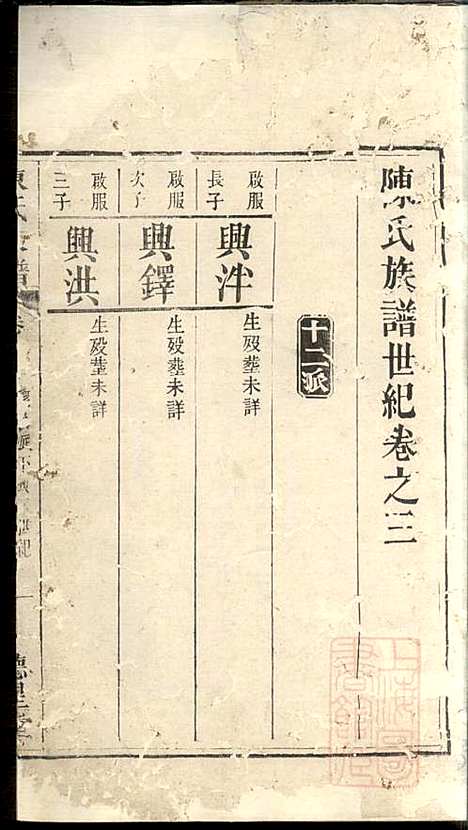 陳氏族譜世紀卷之三
十二派
啟服
長子
興泮
生歿塟未詳
啟服
次子
興鐸
生歿塟未詳
啟服
三子
興洪
生歿塟未詳